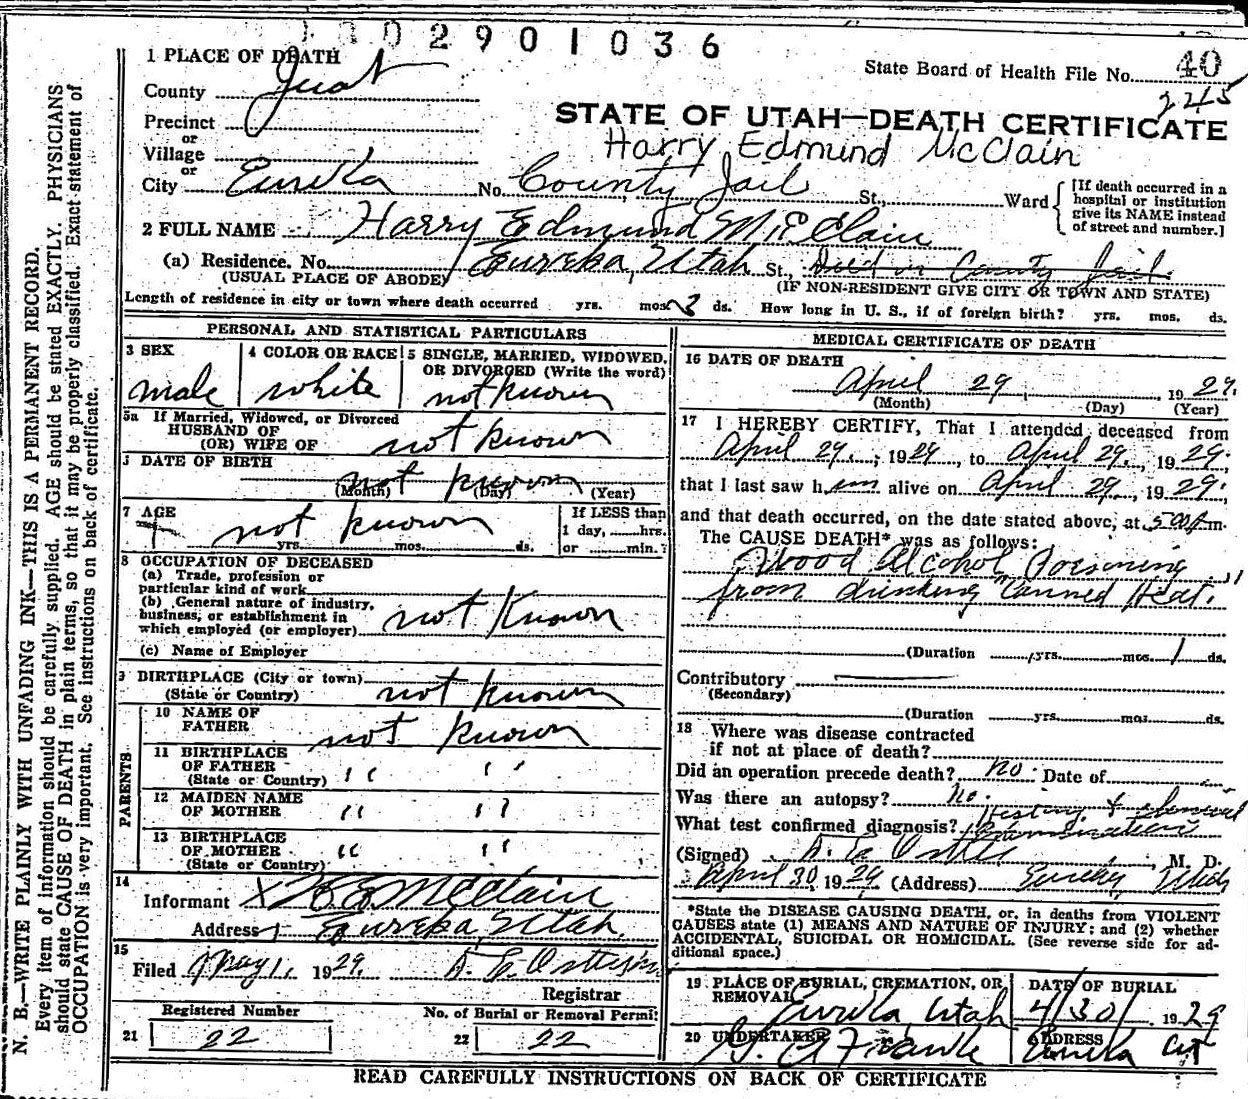 1002901036
1 PLACE OF DEATH
County Juab
State Board of Health File No. 40
245
Precinct
or
Village
or
STATE OF UTAH—DEATH CERTIFICATE
Harry Edmund McClain
City Eureka No. County Jail St., Ward
[If death occurred in a
hospital or institution
give its NAME instead
of street and number.]
2 FULL NAME Harry Edmund McClain
(a) Residence. No. Eureka, Utah St., Died in County Jail.
(USUAL PLACE OF ABODE) (IF NON-RESIDENT GIVE CITY OR TOWN AND STATE)
Length of residence in city or town where death occurred yrs. mos. 2 ds. How long in U. S., if of foreign birth? yrs. mos. ds.
PERSONAL AND STATISTICAL PARTICULARS
3 SEX 4 COLOR OR RACE 5 SINGLE, MARRIED, WIDOWED,
OR DIVORCED (Write the word)
male white not known
5a If Married, Widowed, or Divorced
HUSBAND OF
(OR) WIFE OF not known
DATE OF BIRTH
not known
(Month) (Day) (Year)
7 AGE not known
yrs. mos. ds.
If LESS than
1 day, hrs.
or min.?
8 OCCUPATION OF DECEASED
(a) Trade, profession or
particular kind of work
(b) General nature of industry,
business, or establishment in
which employed (or employer) not known
(c) Name of Employer
9 BIRTHPLACE (City or town)
(State or Country) not known
PARENTS
10 NAME OF
FATHER not known
11 BIRTHPLACE
OF FATHER
(State or Country) " "
12 MAIDEN NAME
OF MOTHER " "
13 BIRTHPLACE
OF MOTHER
(State or Country) " "
14
Informant McClain
Address Eureka, Utah.
15
Filed May 1, 1929.
Registrar
Registered Number No. of Burial or Removal Permit
21 22 22 22
MEDICAL CERTIFICATE OF DEATH
16 DATE OF DEATH
April 29, 1929.
(Month) (Day) (Year)
17 I HEREBY CERTIFY, That I attended deceased from
April 29, 1929, to April 29, 1929.
that I last saw him alive on April 29, 1929.
and that death occurred, on the date stated above, at 5:00 p.m.
The CAUSE DEATH* was as follows:
Wood Alcohol Poisoning
from drinking "Canned Heat."
(Duration yrs. mos. 1 ds.
Contributory
(Secondary)
(Duration yrs. mos. ds.
18 Where was disease contracted
if not at place of death?
Did an operation precede death? no. Date of
Was there an autopsy? No.
What test confirmed diagnosis? History & chemical
Examination
(Signed) M. D.
April 30 1929 (Address) Eureka, Utah
*State the DISEASE CAUSING DEATH, or, in deaths from VIOLENT
CAUSES state (1) MEANS AND NATURE OF INJURY; and (2) whether
ACCIDENTAL, SUICIDAL OR HOMICIDAL. (See reverse side for ad-
ditional space.)
19 PLACE OF BURIAL, CREMATION, OR
REMOVAL Eureka, Utah
DATE OF BURIAL
4/30/ 1929
20 UNDERTAKER ADDRESS
Eureka Ut
READ CAREFULLY INSTRUCTIONS ON BACK OF CERTIFICATE
N. B.—WRITE PLAINLY WITH UNFADING INK—THIS IS A PERMANENT RECORD.
Every item of information should be carefully supplied. AGE should be stated EXACTLY. PHYSICIANS
should state CAUSE OF DEATH in plain terms, so that it may be properly classified. Exact statement of
OCCUPATION is very important. See instructions on back of certificate.